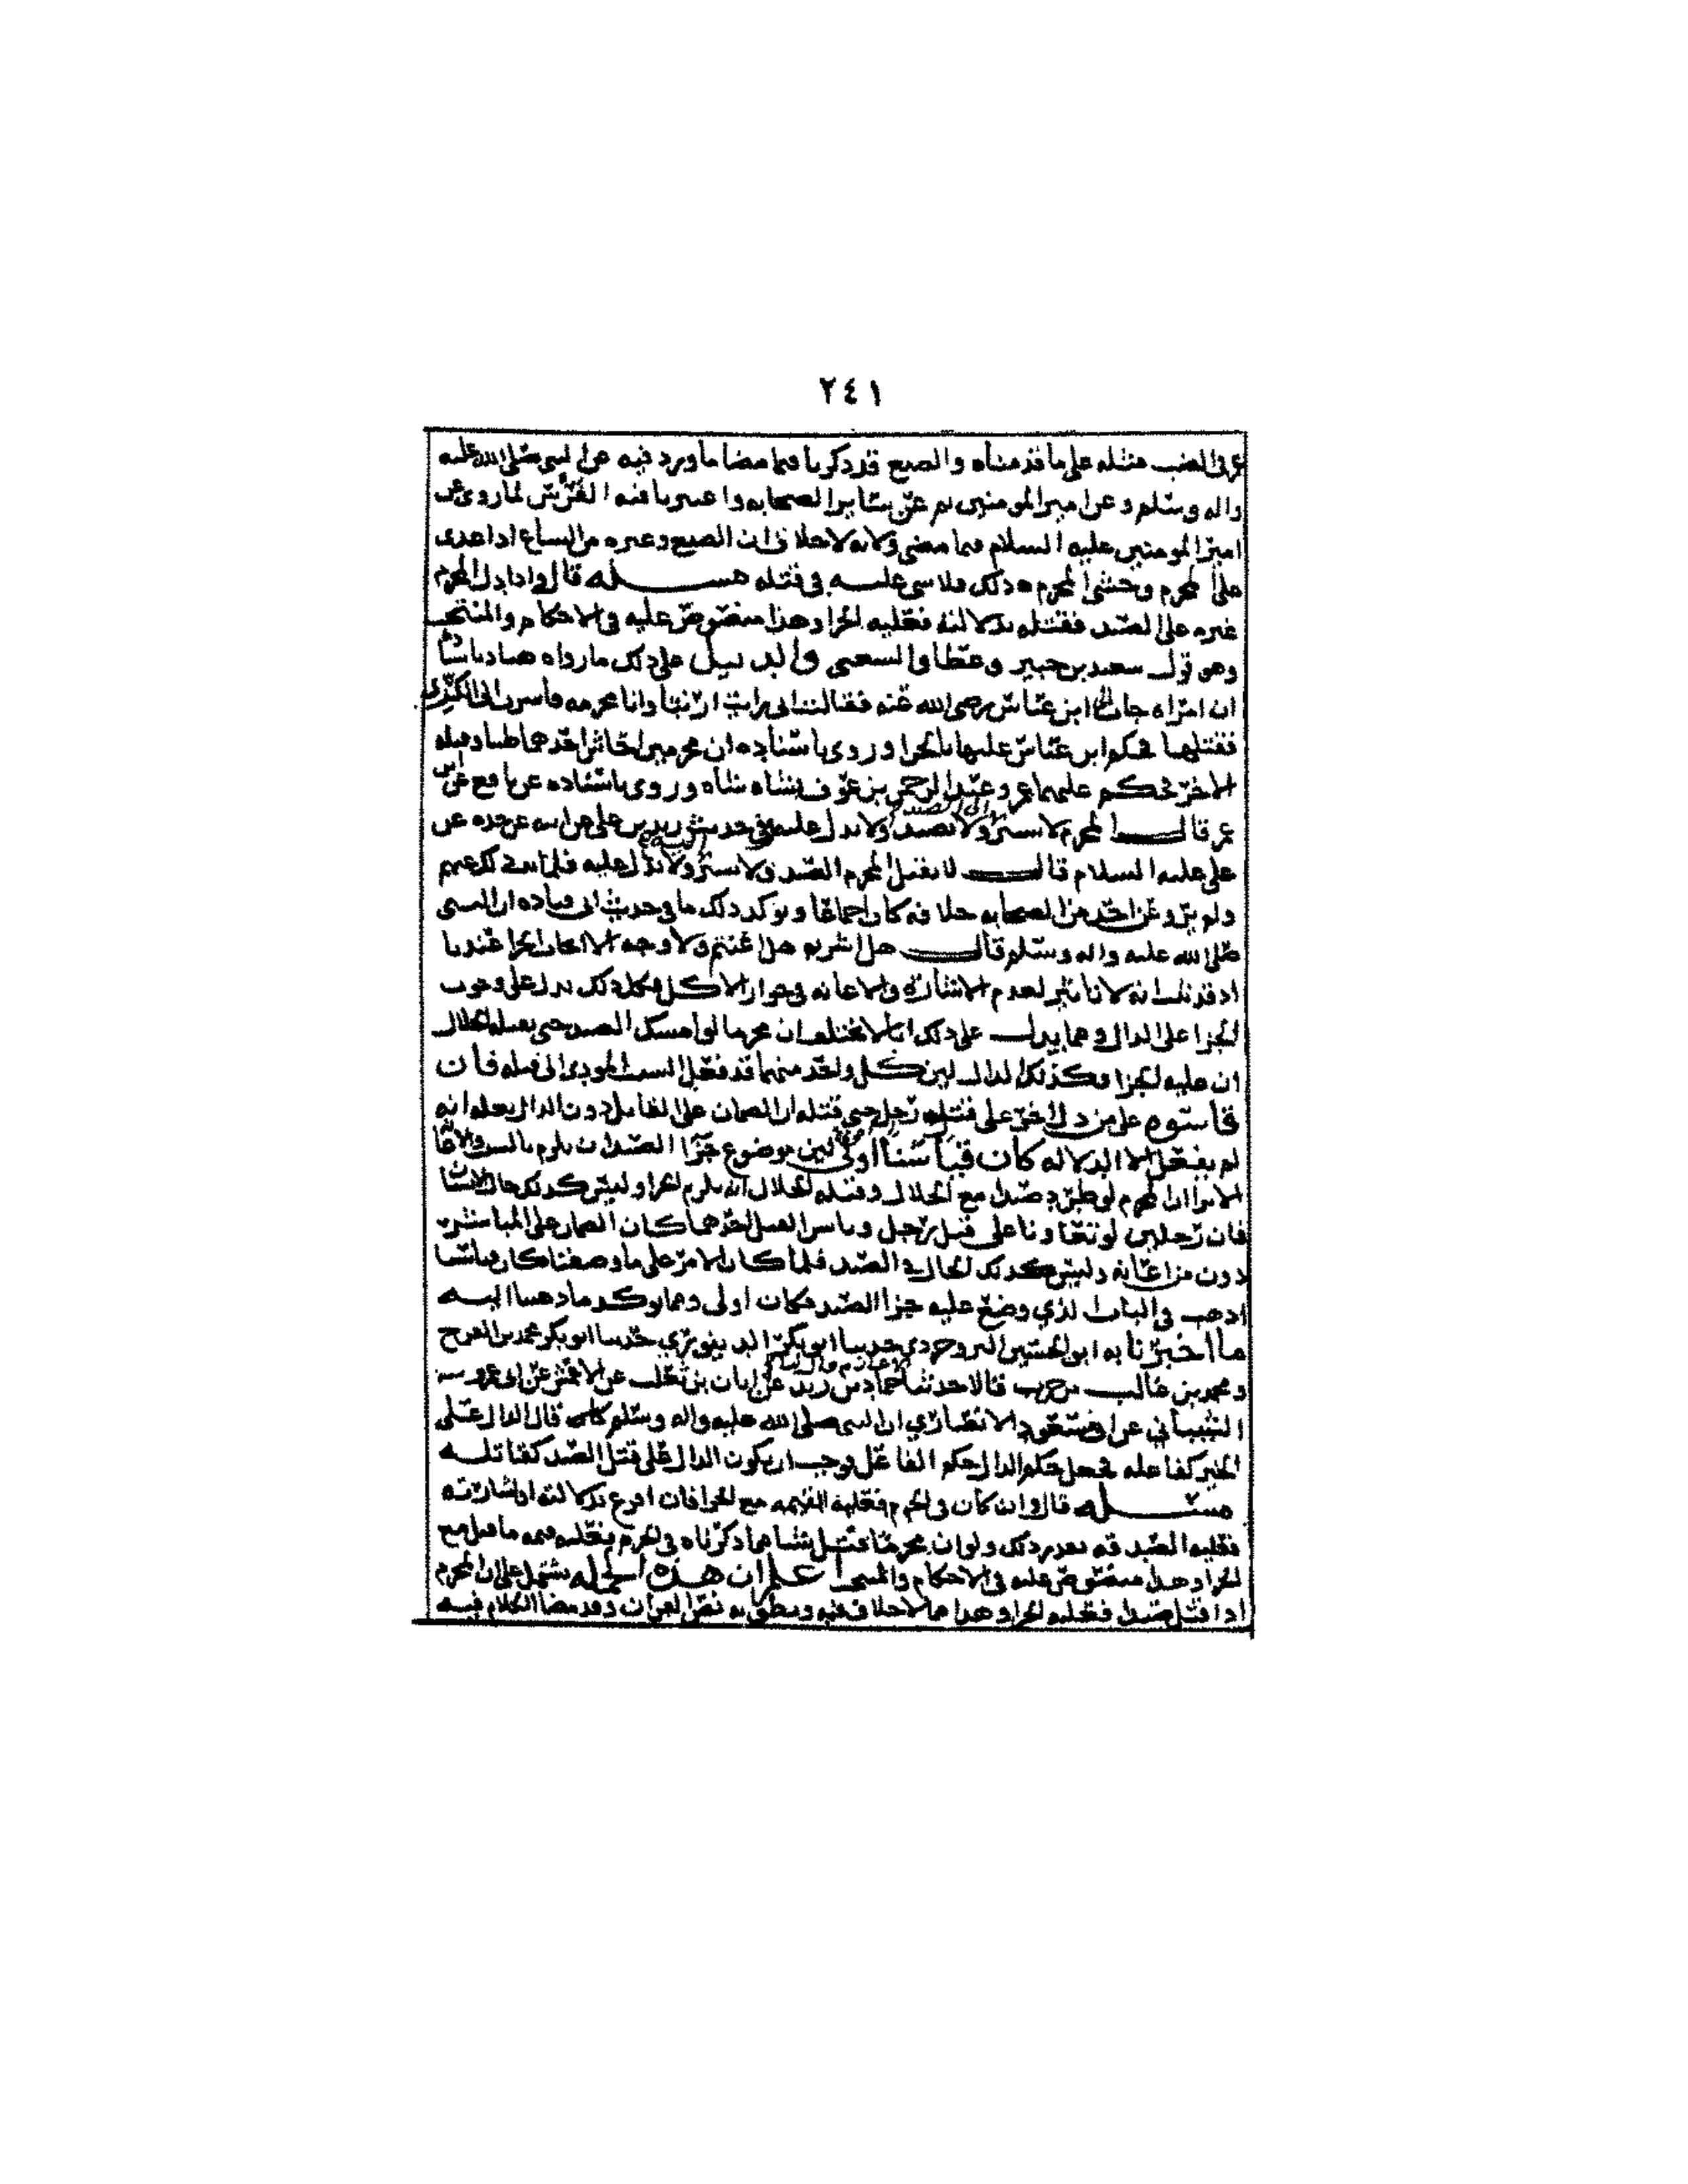 ٢٤١
عرفى الضب مثله على ما قدمناه والضبع قد دكرنا فيما مضا ما ورد فيه عن النبي صلى الله عليه
واله وسلم وعن امير المومنين ثم عن ساير الصحابه واعتبرنا فيه الفرس لما روى عن
امير المومنين عليه السلام فيما مضى ولانه لا خلاف ان الضبع وغيره من السباع ادا عدى
على المحرم وخشى المحرم دلك فلا سى عليه في قتله مسله قال وادا دل المحرم
غيره على الصيد فقتله بدلالته فعليه الجزا وهذا منصوص عليه في الاحكام والمنتخب
وهو قول سعيد بن جبير وعطا والشعبي والدليل على دلك ما رواه هناد باسناده
ان امراه جات الى ابن عباس رضي الله عنه فقالت انى رايت ارنبا وانا محرمه فاسرت الى الكرى
فقتلها فحكم ابن عباس عليها بالجزا وروى باسناده ان محرمين احاش احدهما ظبيا وقتله
الاخر فحكم عليهما عمر وعبد الرحمن بن عوف بشاه شاه وروى باسناده عن نافع عن ابن
عمر قال المحرم لا يسير الى الصيد ولا يدل عليه وفي حديث زيد بن على عن ابيه عن جده عن
على عليه السلام قال لا يقتل المحرم الصيد ولا يسير اليه ولا يدل عليه فلما دلك عنهم
ولم يرو عن احد من الصحابه خلافه كان اجماعا ويوكد دلك ما في حديث ابى قتاده ان النبي
صلى الله عليه واله وسلم قال هل اشرتم هل اعنتم ولا وجه الا ايجاب الجزا عندنا
اد قد لانا ثير لعدم الاشاره والاعانه في جواز الاكل وكل دلك يدل على وجوب
الجزا على الدال ومما يدل على دلك انا لا نختلف ان محرما لو امسك الصيد حتى يقتله الحلال
ان عليه الجزا وكذلك الدال لين كل واحد منهما قد فعل السبب المودى الى قتله فان
قاسوه على من دل اخر على قتل رجل حتى قتله ان الضمان على القاتل دون الدال بعله انه
لم يفعل الا الدلاله كان قياسنا اولى لين موضوع جزا الصيد ان يلزم بالسبب
الا ترا ان المحرم لو طرد صيدا مع الحلال وقتله الحلال انه يلزم الجزا وليس كذلك حال الانسان
فان رجلين لو تعاونا على قتل رجل وباسر القتل احدهما كان الضمان على المباشر
دون من اعانه وليس كذلك الحال في الصيد فلما كان الامر على ما وصفنا كان قياسنا
ادهب في الباب الذي وضع عليه جزا الصيد فكان اولى ومما يوكد ما دهبنا اليه
ما اخبرنا به ابو الحسين البروجردي حدثنا ابو بكر الدينوري حدثنا ابو بكر محمد بن الفرج
ومحمد بن غالب بن حرب قالا حدثنا حماد بن زيد عن ابان بن تغلب عن الاعمش عن ابى عمرو
الشيباني عن ابى مسعود الانصاري ان النبي صلى الله عليه واله وسلم قال الدال على
الخير كفاعله فجعل حكم الدال حكم الفاعل فوجب ان يكون الدال على قتل الصيد كقاتله
مسله قال وان كان في الحرم فعليه القيمه مع الجزا فان افزع بدلالته او اشارته
فعليه الصيد قدر دلك ولو ان محرما قتل شيا مما دكرناه في الحرم فعليه قيمه ما قتل مع
الجزا وهذا منصوص عليه في الاحكام والمنتخب اعلم ان هذه الجمله يشتمل على ان المحرم
ادا قتل صيدا فعليه الجزا وهذا مما لا خلاف فيه وينطق به نص القران وقد مضا الكلام فيه